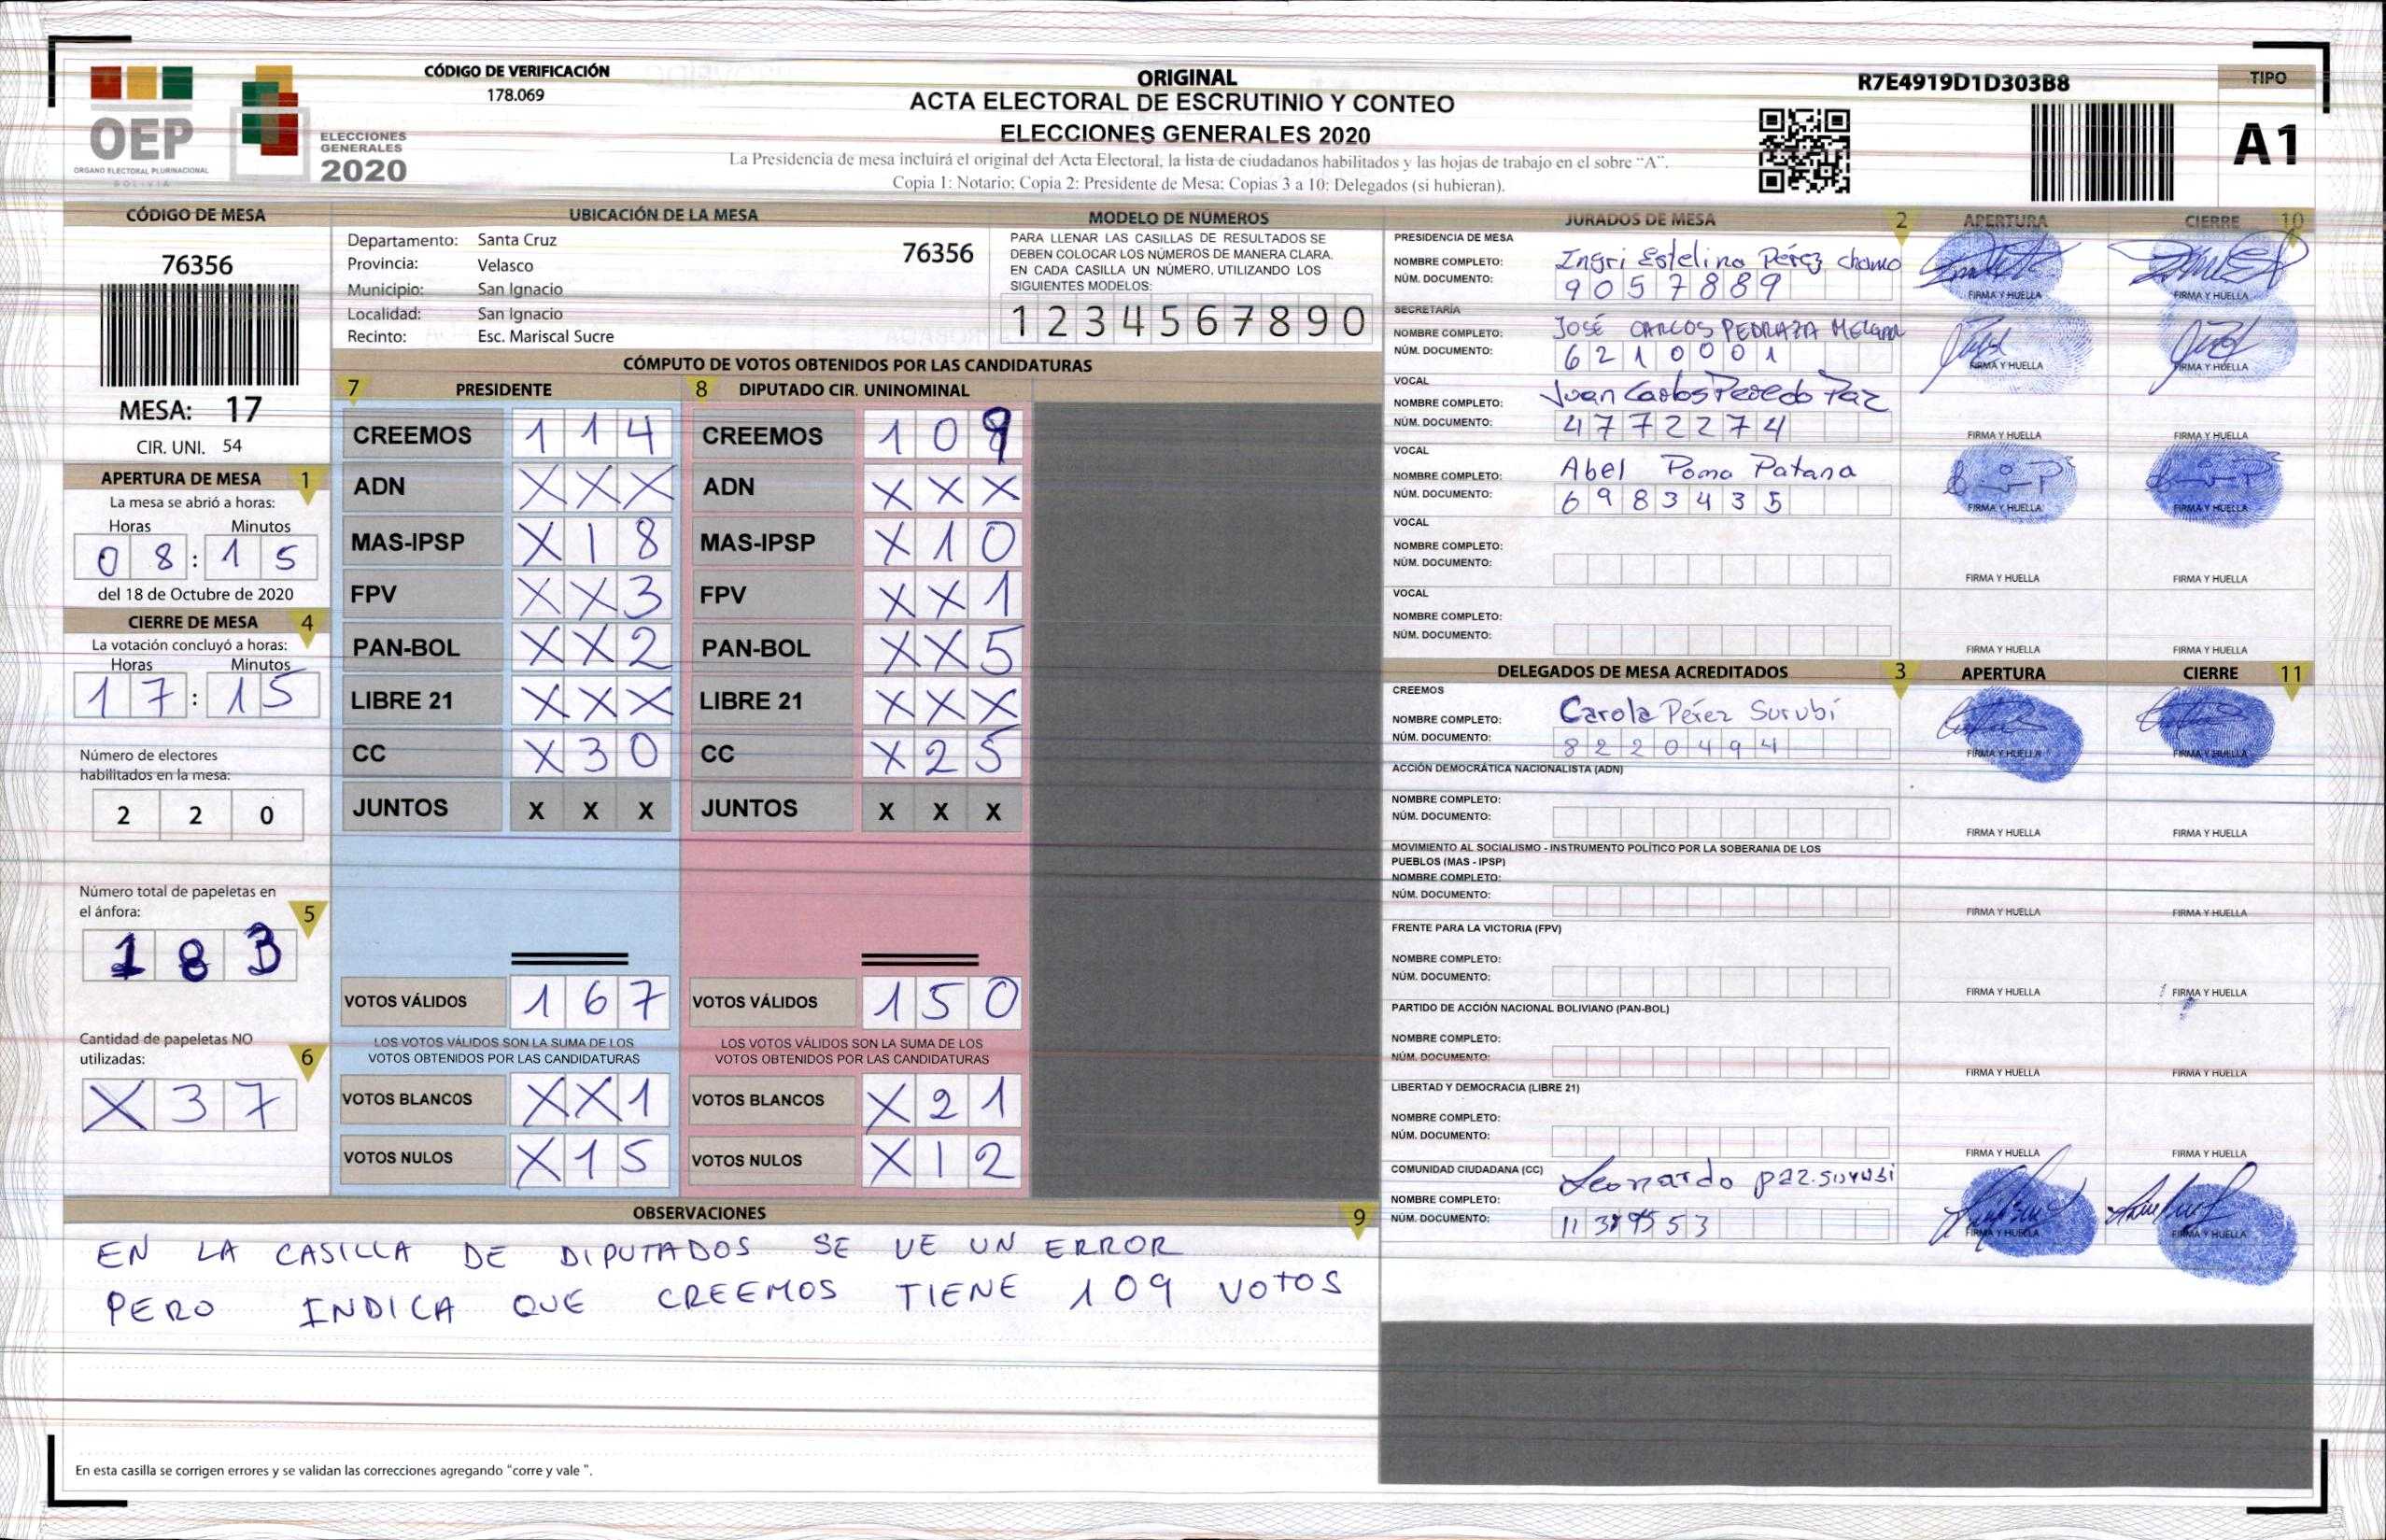 OEP
ORGANO ELECTORAL PLURINACIONAL
BOLIVIA
ELECCIONES
GENERALES
2020
CÓDIGO DE VERIFICACIÓN
178.069
ORIGINAL
ACTA ELECTORAL DE ESCRUTINIO Y CONTEO
ELECCIONES GENERALES 2020
La Presidencia de mesa incluirá el original del Acta Electoral, la lista de ciudadanos habilitados y las hojas de trabajo en el sobre "A".
Copia 1: Notario; Copia 2: Presidente de Mesa; Copias 3 a 10: Delegados (si hubieran).
R7E4919D1D303B8
TIPO
A1
CÓDIGO DE MESA
76356
MESA: 17
CIR. UNI. 54
APERTURA DE MESA 1
La mesa se abrió a horas:
Horas Minutos
08:15
del 18 de Octubre de 2020
CIERRE DE MESA 4
La votación concluyó a horas:
Horas Minutos
17:15
Número de electores
habilitados en la mesa:
2 2 0
Número total de papeletas en
el ánfora: 5
1 8 3
Cantidad de papeletas NO
utilizadas: 6
X 3 7
UBICACIÓN DE LA MESA
Departamento: Santa Cruz
76356
Provincia: Velasco
Municipio: San Ignacio
Localidad: San Ignacio
Recinto: Esc. Mariscal Sucre
MODELO DE NÚMEROS
PARA LLENAR LAS CASILLAS DE RESULTADOS SE
DEBEN COLOCAR LOS NÚMEROS DE MANERA CLARA.
EN CADA CASILLA UN NÚMERO, UTILIZANDO LOS
SIGUIENTES MODELOS:
1 2 3 4 5 6 7 8 9 0
CÓMPUTO DE VOTOS OBTENIDOS POR LAS CANDIDATURAS
7 PRESIDENTE 8 DIPUTADO CIR. UNINOMINAL
CREEMOS 1 1 4 CREEMOS 1 0 9
ADN X X X ADN X X X
MAS-IPSP X 1 8 MAS-IPSP X 1 0
FPV X X 3 FPV X X 1
PAN-BOL X X 2 PAN-BOL X X 5
LIBRE 21 X X X LIBRE 21 X X X
CC X 3 0 CC X 2 5
JUNTOS X X X JUNTOS X X X
VOTOS VÁLIDOS 1 6 7 VOTOS VÁLIDOS 1 5 0
LOS VOTOS VÁLIDOS SON LA SUMA DE LOS LOS VOTOS VÁLIDOS SON LA SUMA DE LOS
VOTOS OBTENIDOS POR LAS CANDIDATURAS VOTOS OBTENIDOS POR LAS CANDIDATURAS
VOTOS BLANCOS X X 1 VOTOS BLANCOS X 2 1
VOTOS NULOS X 1 5 VOTOS NULOS X 1 2
OBSERVACIONES 9
EN LA CASILLA DE DIPUTADOS SE VE UN ERROR
PERO INDICA QUE CREEMOS TIENE 109 VOTOS
En esta casilla se corrigen errores y se validan las correcciones agregando "corre y vale ".
JURADOS DE MESA 2 APERTURA CIERRE 10
PRESIDENCIA DE MESA
NOMBRE COMPLETO: Ingri Estelina Pérez chamo
NÚM. DOCUMENTO: 9057889
FIRMA Y HUELLA FIRMA Y HUELLA
SECRETARÍA
NOMBRE COMPLETO: JOSÉ CARLOS PEDRAZA MELGAR
NÚM. DOCUMENTO: 6210001
FIRMA Y HUELLA FIRMA Y HUELLA
VOCAL
NOMBRE COMPLETO: Juan Carlos Peredo Paz
NÚM. DOCUMENTO: 4772274
FIRMA Y HUELLA FIRMA Y HUELLA
VOCAL
NOMBRE COMPLETO: Abel Poma Patana
NÚM. DOCUMENTO: 6983435
FIRMA Y HUELLA FIRMA Y HUELLA
VOCAL
NOMBRE COMPLETO:
NÚM. DOCUMENTO:
FIRMA Y HUELLA FIRMA Y HUELLA
VOCAL
NOMBRE COMPLETO:
NÚM. DOCUMENTO:
FIRMA Y HUELLA FIRMA Y HUELLA
DELEGADOS DE MESA ACREDITADOS 3 APERTURA CIERRE 11
CREEMOS
NOMBRE COMPLETO: Carola Pérez Surubi
NÚM. DOCUMENTO: 8220494
FIRMA Y HUELLA FIRMA Y HUELLA
ACCIÓN DEMOCRÁTICA NACIONALISTA (ADN)
NOMBRE COMPLETO:
NÚM. DOCUMENTO:
FIRMA Y HUELLA FIRMA Y HUELLA
MOVIMIENTO AL SOCIALISMO - INSTRUMENTO POLÍTICO POR LA SOBERANIA DE LOS
PUEBLOS (MAS - IPSP)
NOMBRE COMPLETO:
NÚM. DOCUMENTO:
FIRMA Y HUELLA FIRMA Y HUELLA
FRENTE PARA LA VICTORIA (FPV)
NOMBRE COMPLETO:
NÚM. DOCUMENTO:
FIRMA Y HUELLA FIRMA Y HUELLA
PARTIDO DE ACCIÓN NACIONAL BOLIVIANO (PAN-BOL)
NOMBRE COMPLETO:
NÚM. DOCUMENTO:
FIRMA Y HUELLA FIRMA Y HUELLA
LIBERTAD Y DEMOCRACIA (LIBRE 21)
NOMBRE COMPLETO:
NÚM. DOCUMENTO:
FIRMA Y HUELLA FIRMA Y HUELLA
COMUNIDAD CIUDADANA (CC)
NOMBRE COMPLETO: Leonardo paz surubi
NÚM. DOCUMENTO:
FIRMA Y HUELLA FIRMA Y HUELLA